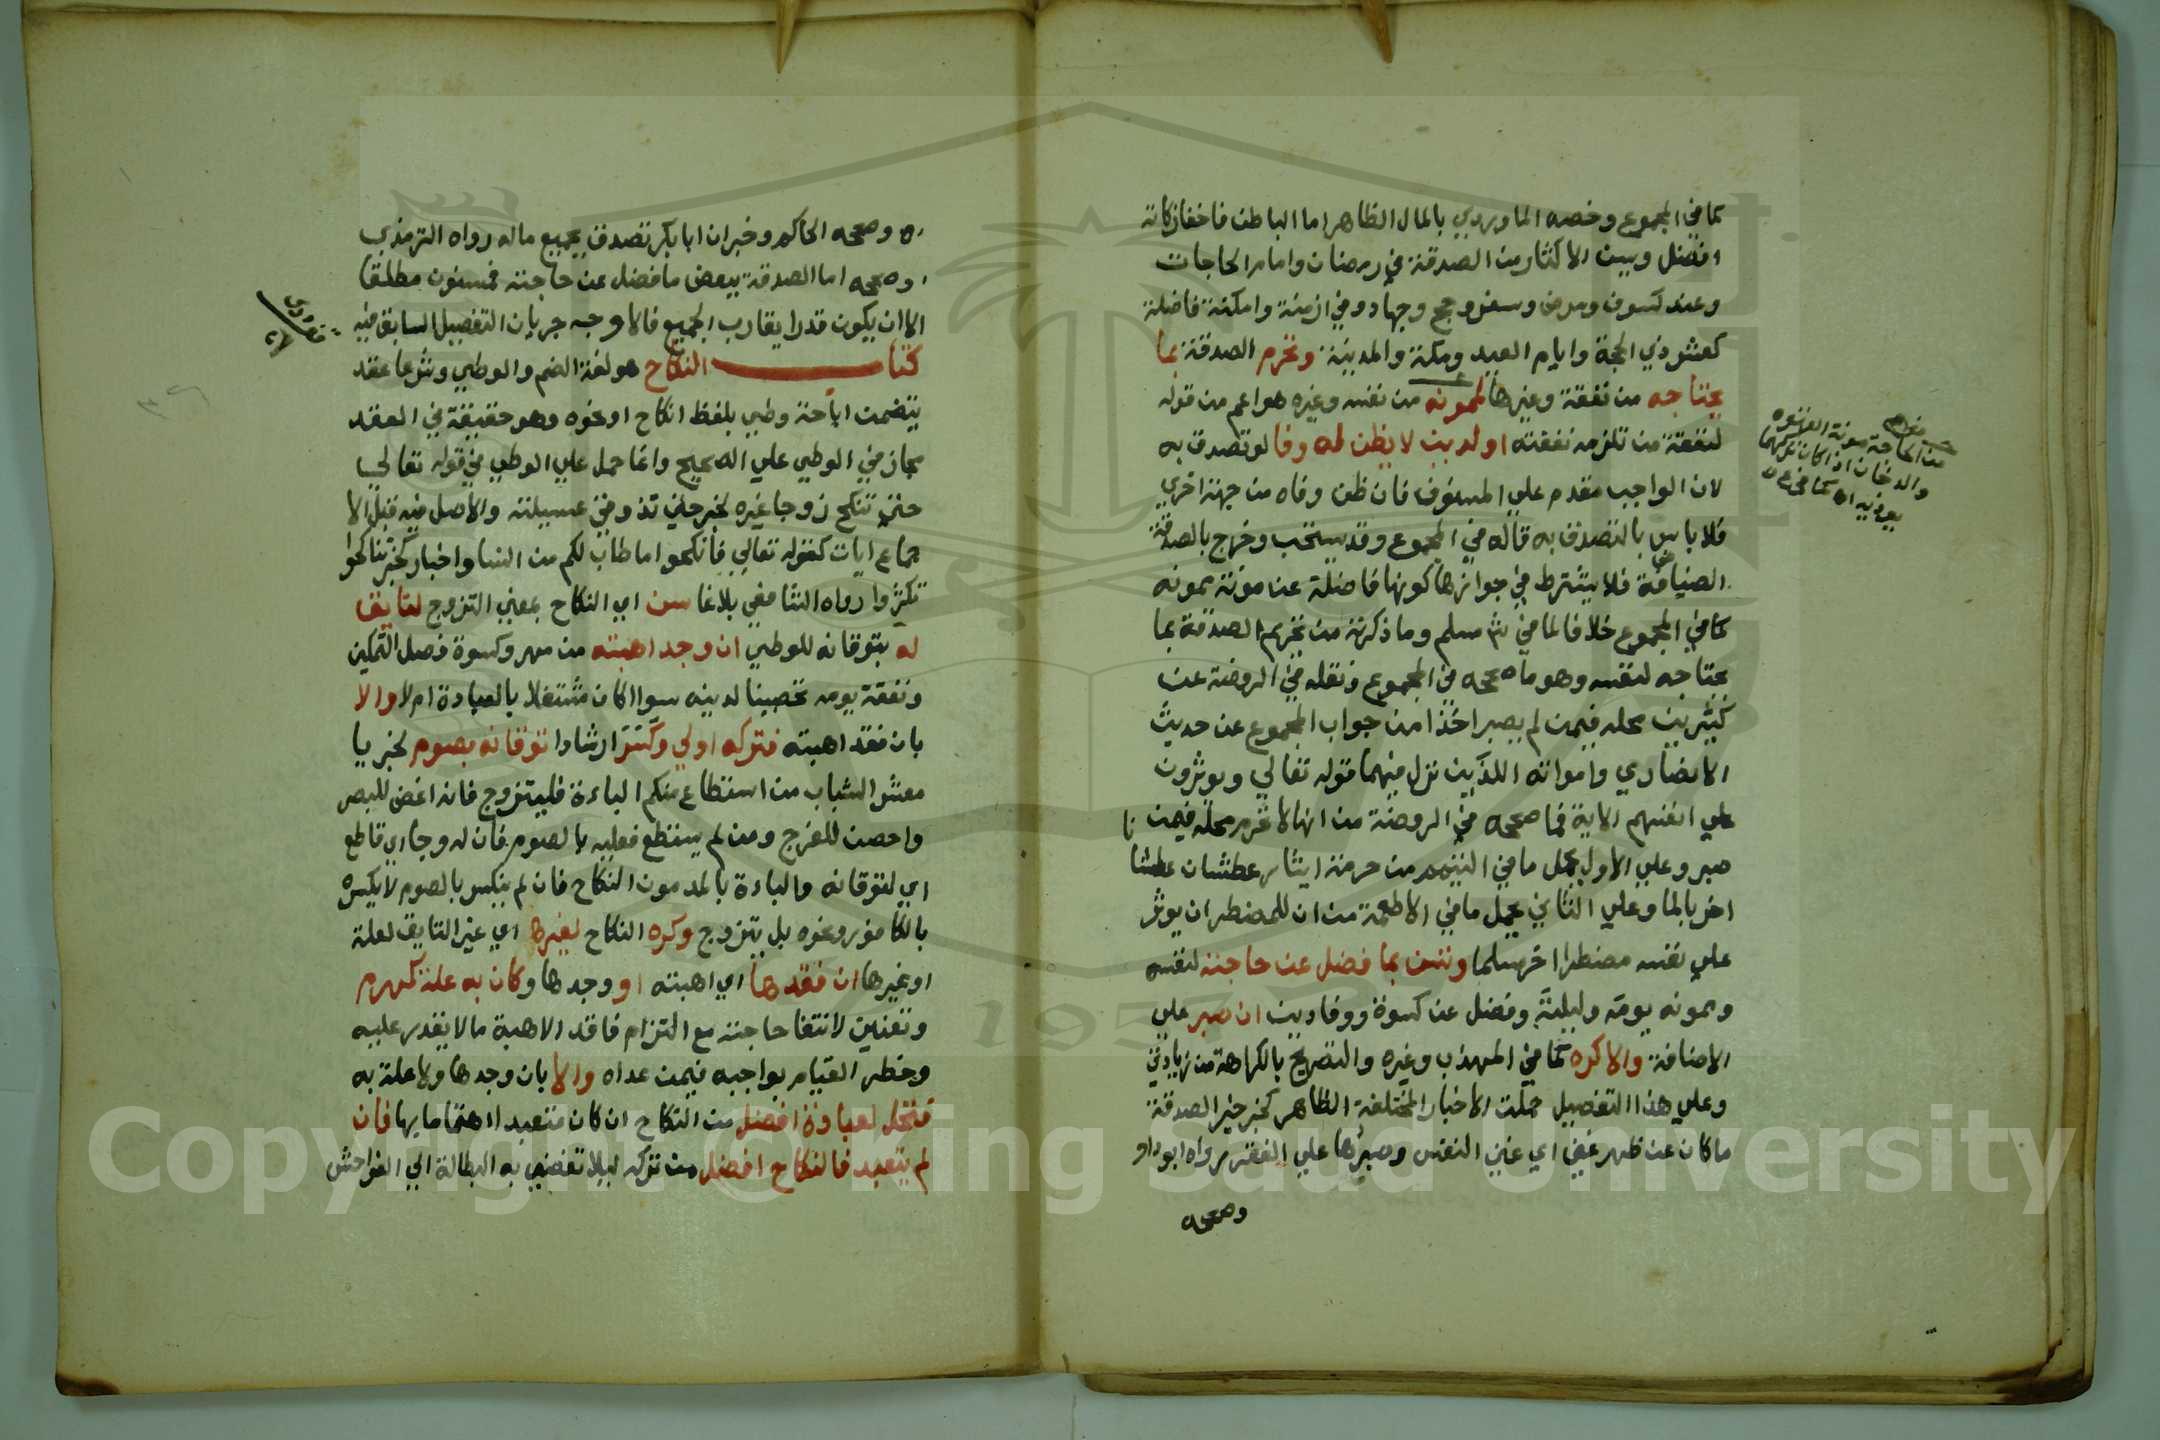 كما في المجموع وخصه الماوردي بالمال الظاهر اما الباطن فاخفا زكاته
افضل ويسن الاكثار من الصدقة في رمضان وامام الحاجات
وعند كسوف ومرض وسفر وحج وجهاد وفي ازمنة وامكنة فاضلة
كعشر ذي الحجة وايام العيد ومكة والمدينة وتحرم الصدقة بما
يحتاجه من نفقة وغيرها لممونه من نفسه وغيره هو اعم من قوله
لنفقة من تلزمه نفقته او لدين لا يظن له وفا لو تصدق به
لان الواجب مقدم علي المسنون فان ظن وفاه من جهة اخري
فلا باس بالتصدق به قاله في المجموع وقد يستحب وخرج بالصدقة
الضيافة فلا يشترط في جوازها كونها فاضلة عن مؤنة ممونه
كما في المجموع خلافا لما في شر مسلم وما ذكرته من تحريم الصدقة بما
يحتاجه لنفسه وهو ما صححه في المجموع ونقله في الروضة عن
كثيرين محله فيمن لم يصبر اخذا من جواب المجموع عن حديث
الانصاري وامراته اللذين نزل فيهما قوله تعالي ويوثرون
علي انفسهم الاية فما صححه في الروضة من انها لا تحرم محله فيمن
صبر وعلي الاول يحمل ما في التيمم من حرمة ايثار عطشان عطشانا
اخر بالما وعلي الثاني يحمل ما في الاطعمة من ان للمضطر ان يوثر
علي نفسه مضطرا اخر مسلما وتسن بما فضل عن حاجته لنفسه
وممونه يومه وليلته وفضل عن كسوة ووفا دين ان صبر علي
الاضافة والا كره كما في المهذب وغيره والتصريح بالكراهة من زيادتي
وعلي هذا التفصيل حملت الاخبار المختلفة الظاهر كخبر خير الصدقة
ما كان عن ظهر غني اي غني النفس وصبرها علي الفقر رواه ابو داود
وصححه
من الحاجة مونة القهوة
والدخان اذا كان تركهما
يوذيه اه كما في ع ش
وصححه الحاكم وخبر ان ابا بكر تصدق بجميع ماله رواه الترمذي
وصححه اما الصدقة ببعض ما فضل عن حاجته فمسنون مطلقا
الا ان يكون قدرا يقارب الجميع فالاوجه جريان التفصيل السابق فيه
كتاب النكاح هو لغة الضم والوطي وشرعا عقد
يتضمن اباحة وطي بلفظ انكاح او نحوه وهو حقيقة في العقد
مجاز في الوطي علي الصحيح وانما حمل علي الوطي في قوله تعالي
حتي تنكح زوجا غيره لخبر حتي تذوقي عسيلته والاصل فيه قبل الا
جماع ايات كقوله تعالي فانكحوا ما طاب لكم من النسا واخبار كخبر تناكحوا
تكثروا رواه الشافعي بلاغا سن اي النكاح بمعني التزوج لتايق
له بتوقانه للوطي ان وجد اهبته من مهر وكسوة فصل التمكين
ونفقة يومه تحصينا لدينه سوا اكان مشتغلا بالعبادة ام لا والا
بان فقد اهبته فتركه اولي وكسر ارشادا توقانه بصوم لخبر يا
معشر الشباب من استطاع منكم الباءة فليتزوج فانه اغض للبصر
واحصن للفرج ومن لم يستطع فعليه بالصوم فان له وجا اي قاطع
اي لتوقانه والباءة بالمد مون النكاح فان لم ينكسر بالصوم لا يكسره
بالكافور ونحوه بل يتزوج وكره النكاح لغيرها اي غير التايق لعلة
او غيرها ان فقدها اي اهبته او وجدها وكان به علة كهرم
وتعنين لانتفا حاجته مع التزام فاقد الاهبة ما لا يقدر عليه
وخطر القيام بواجبه فيمن عداه والا بان وجدها ولا علة به
فتخل لعبادة افضل من النكاح ان كان متعبدا اهتماما بها فان
لم يتعبد فالنكاح افضل من تركه ليلا تفضي به البطالة الي الفواحش
Copyright © King Saud University
1957